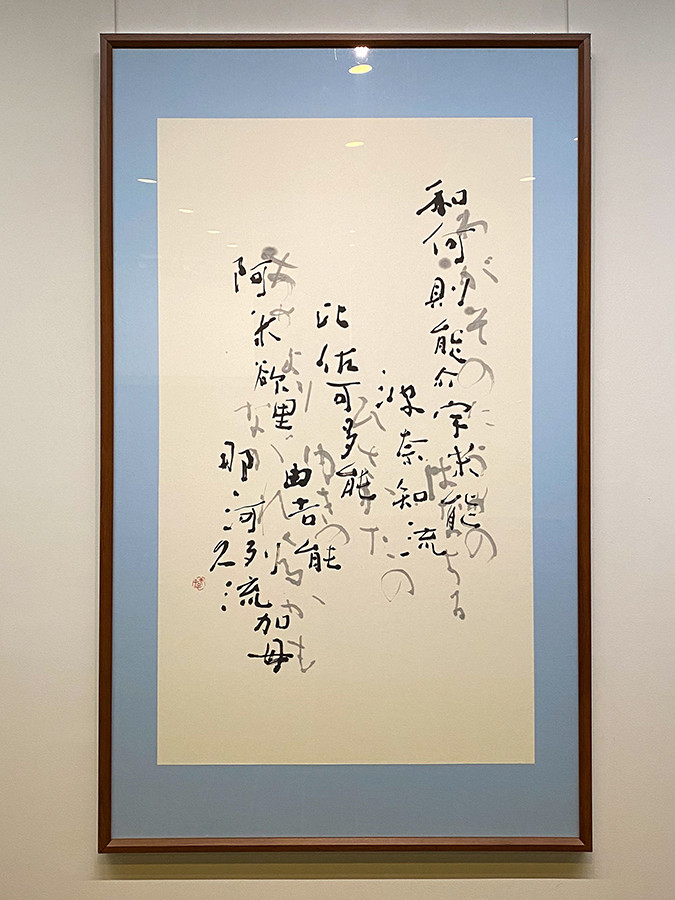 和何則能尓宇米能
波奈知流
比佐可多能
阿米欲里
由吉能
那何列久流加母
わがそのにうめの
はなちる
ひさかたの
あめより
ゆきの
ながれくるかも